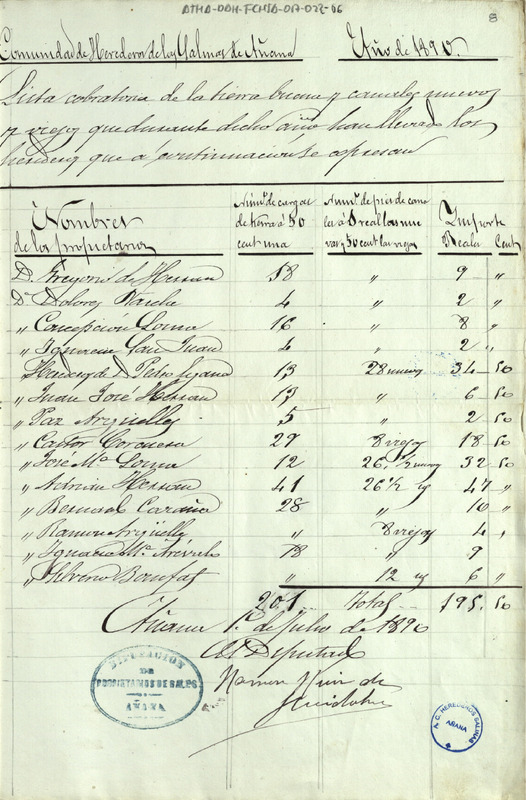 ATHA-DAH-FCHSA-017-022-06
8
Comunidad de Herederos de las Salinas de Añana Año de 1890.
Lista cobratoria de la tierra buena y canales nuevos
y viejos que durante dicho año han llevado los
herederos que á continuacion se espresan
Nombres de los propietarios
Núm.º de cargas de tierra á 50 cent una
Núm.º de pies de canales á 1 real los nuevos y 50 cent los viejos
Importe
Reales Cent
D. Gregorio de Herran 18 " 9 "
Dª Dolores 4 " 2 "
" Concepción Loma 16 " 8 "
" Ignacio San Juan 4 " 2 "
Herederos de D. Pedro 13 28 nuevos 34 50
" Juan José Herran 13 " 6 50
" Paz Argüelles 5 " 2 50
" Castor 29 8 viejos 18 50
" José Mª Loma 12 26 ½ nuevos 32 50
" Adrian Herran 41 26 ½ 47 "
" Bernabé 28 " 16 "
" Ramon Argüelles " 8 viejos 4 "
" Ignacio Mª 18 " 9
" Silverio " 12 6 "
201 total 195. 50
Añana 1.º de Julio de 1890
El Diputado
Ramon Ruiz de
DIPUTACION
DE
PROPIETARIOS DE SALES
AÑANA.
A.C. HEREDEROS SALINAS
AÑANA